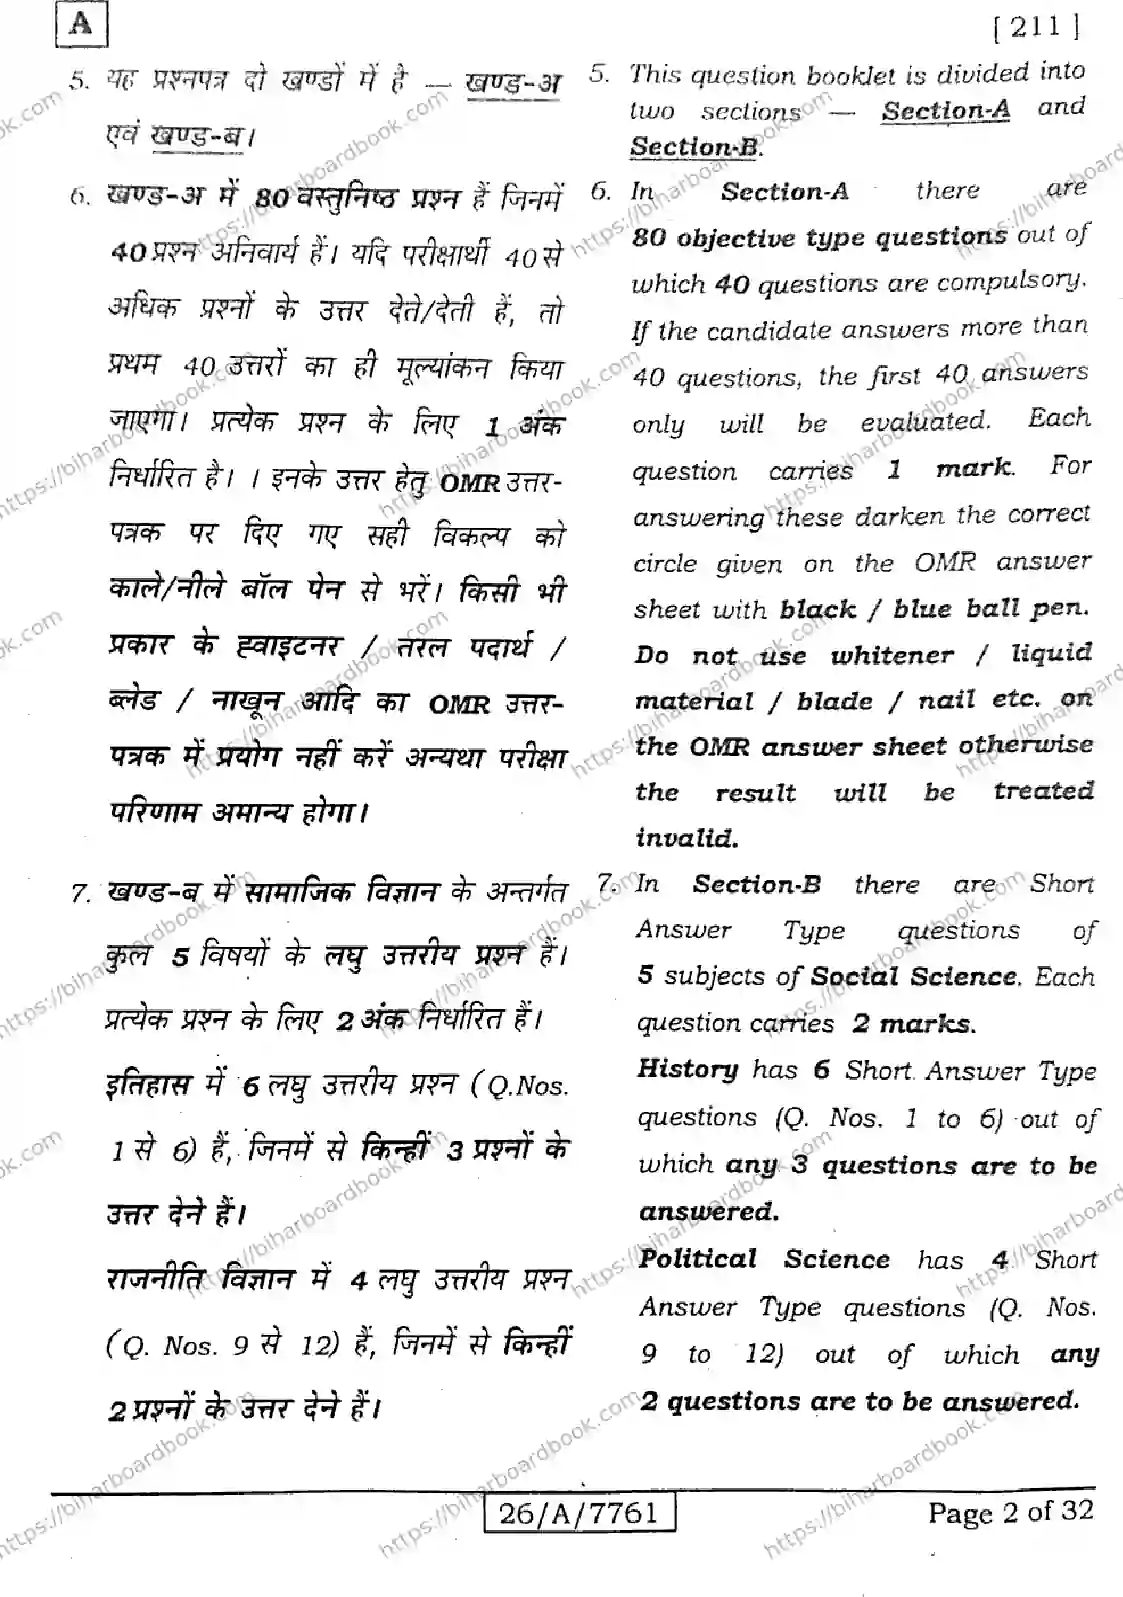 A
[ 211 ]
5. यह प्रश्नपत्र दो खण्डों में है — खण्ड-अ
एवं खण्ड-ब।
6. खण्ड-अ में 80 वस्तुनिष्ठ प्रश्न हैं जिनमें
40 प्रश्न अनिवार्य हैं। यदि परीक्षार्थी 40 से
अधिक प्रश्नों के उत्तर देते/देती हैं, तो
प्रथम 40 उत्तरों का ही मूल्यांकन किया
जाएगा। प्रत्येक प्रश्न के लिए 1 अंक
निर्धारित है। । इनके उत्तर हेतु OMR उत्तर-
पत्रक पर दिए गए सही विकल्प को
काले/नीले बॉल पेन से भरें। किसी भी
प्रकार के ह्वाइटनर / तरल पदार्थ /
ब्लेड / नाखून आदि का OMR उत्तर-
पत्रक में प्रयोग नहीं करें अन्यथा परीक्षा
परिणाम अमान्य होगा।
7. खण्ड-ब में सामाजिक विज्ञान के अन्तर्गत
कुल 5 विषयों के लघु उत्तरीय प्रश्न हैं।
प्रत्येक प्रश्न के लिए 2 अंक निर्धारित हैं।
इतिहास में 6 लघु उत्तरीय प्रश्न (Q.Nos.
1 से 6) हैं, जिनमें से किन्हीं 3 प्रश्नों के
उत्तर देने हैं।
राजनीति विज्ञान में 4 लघु उत्तरीय प्रश्न
(Q. Nos. 9 से 12) हैं, जिनमें से किन्हीं
2 प्रश्नों के उत्तर देने हैं।
5. This question booklet is divided into
two sections — Section-A and
Section-B.
6. In Section-A there are
80 objective type questions out of
which 40 questions are compulsory.
If the candidate answers more than
40 questions, the first 40 answers
only will be evaluated. Each
question carries 1 mark. For
answering these darken the correct
circle given on the OMR answer
sheet with black / blue ball pen.
Do not use whitener / liquid
material / blade / nail etc. on
the OMR answer sheet otherwise
the result will be treated
invalid.
7. In Section-B there are Short
Answer Type questions of
5 subjects of Social Science. Each
question carries 2 marks.
History has 6 Short Answer Type
questions (Q. Nos. 1 to 6) out of
which any 3 questions are to be
answered.
Political Science has 4 Short
Answer Type questions (Q. Nos.
9 to 12) out of which any
2 questions are to be answered.
26/A/7761
Page 2 of 32
https://biharboardbook.com